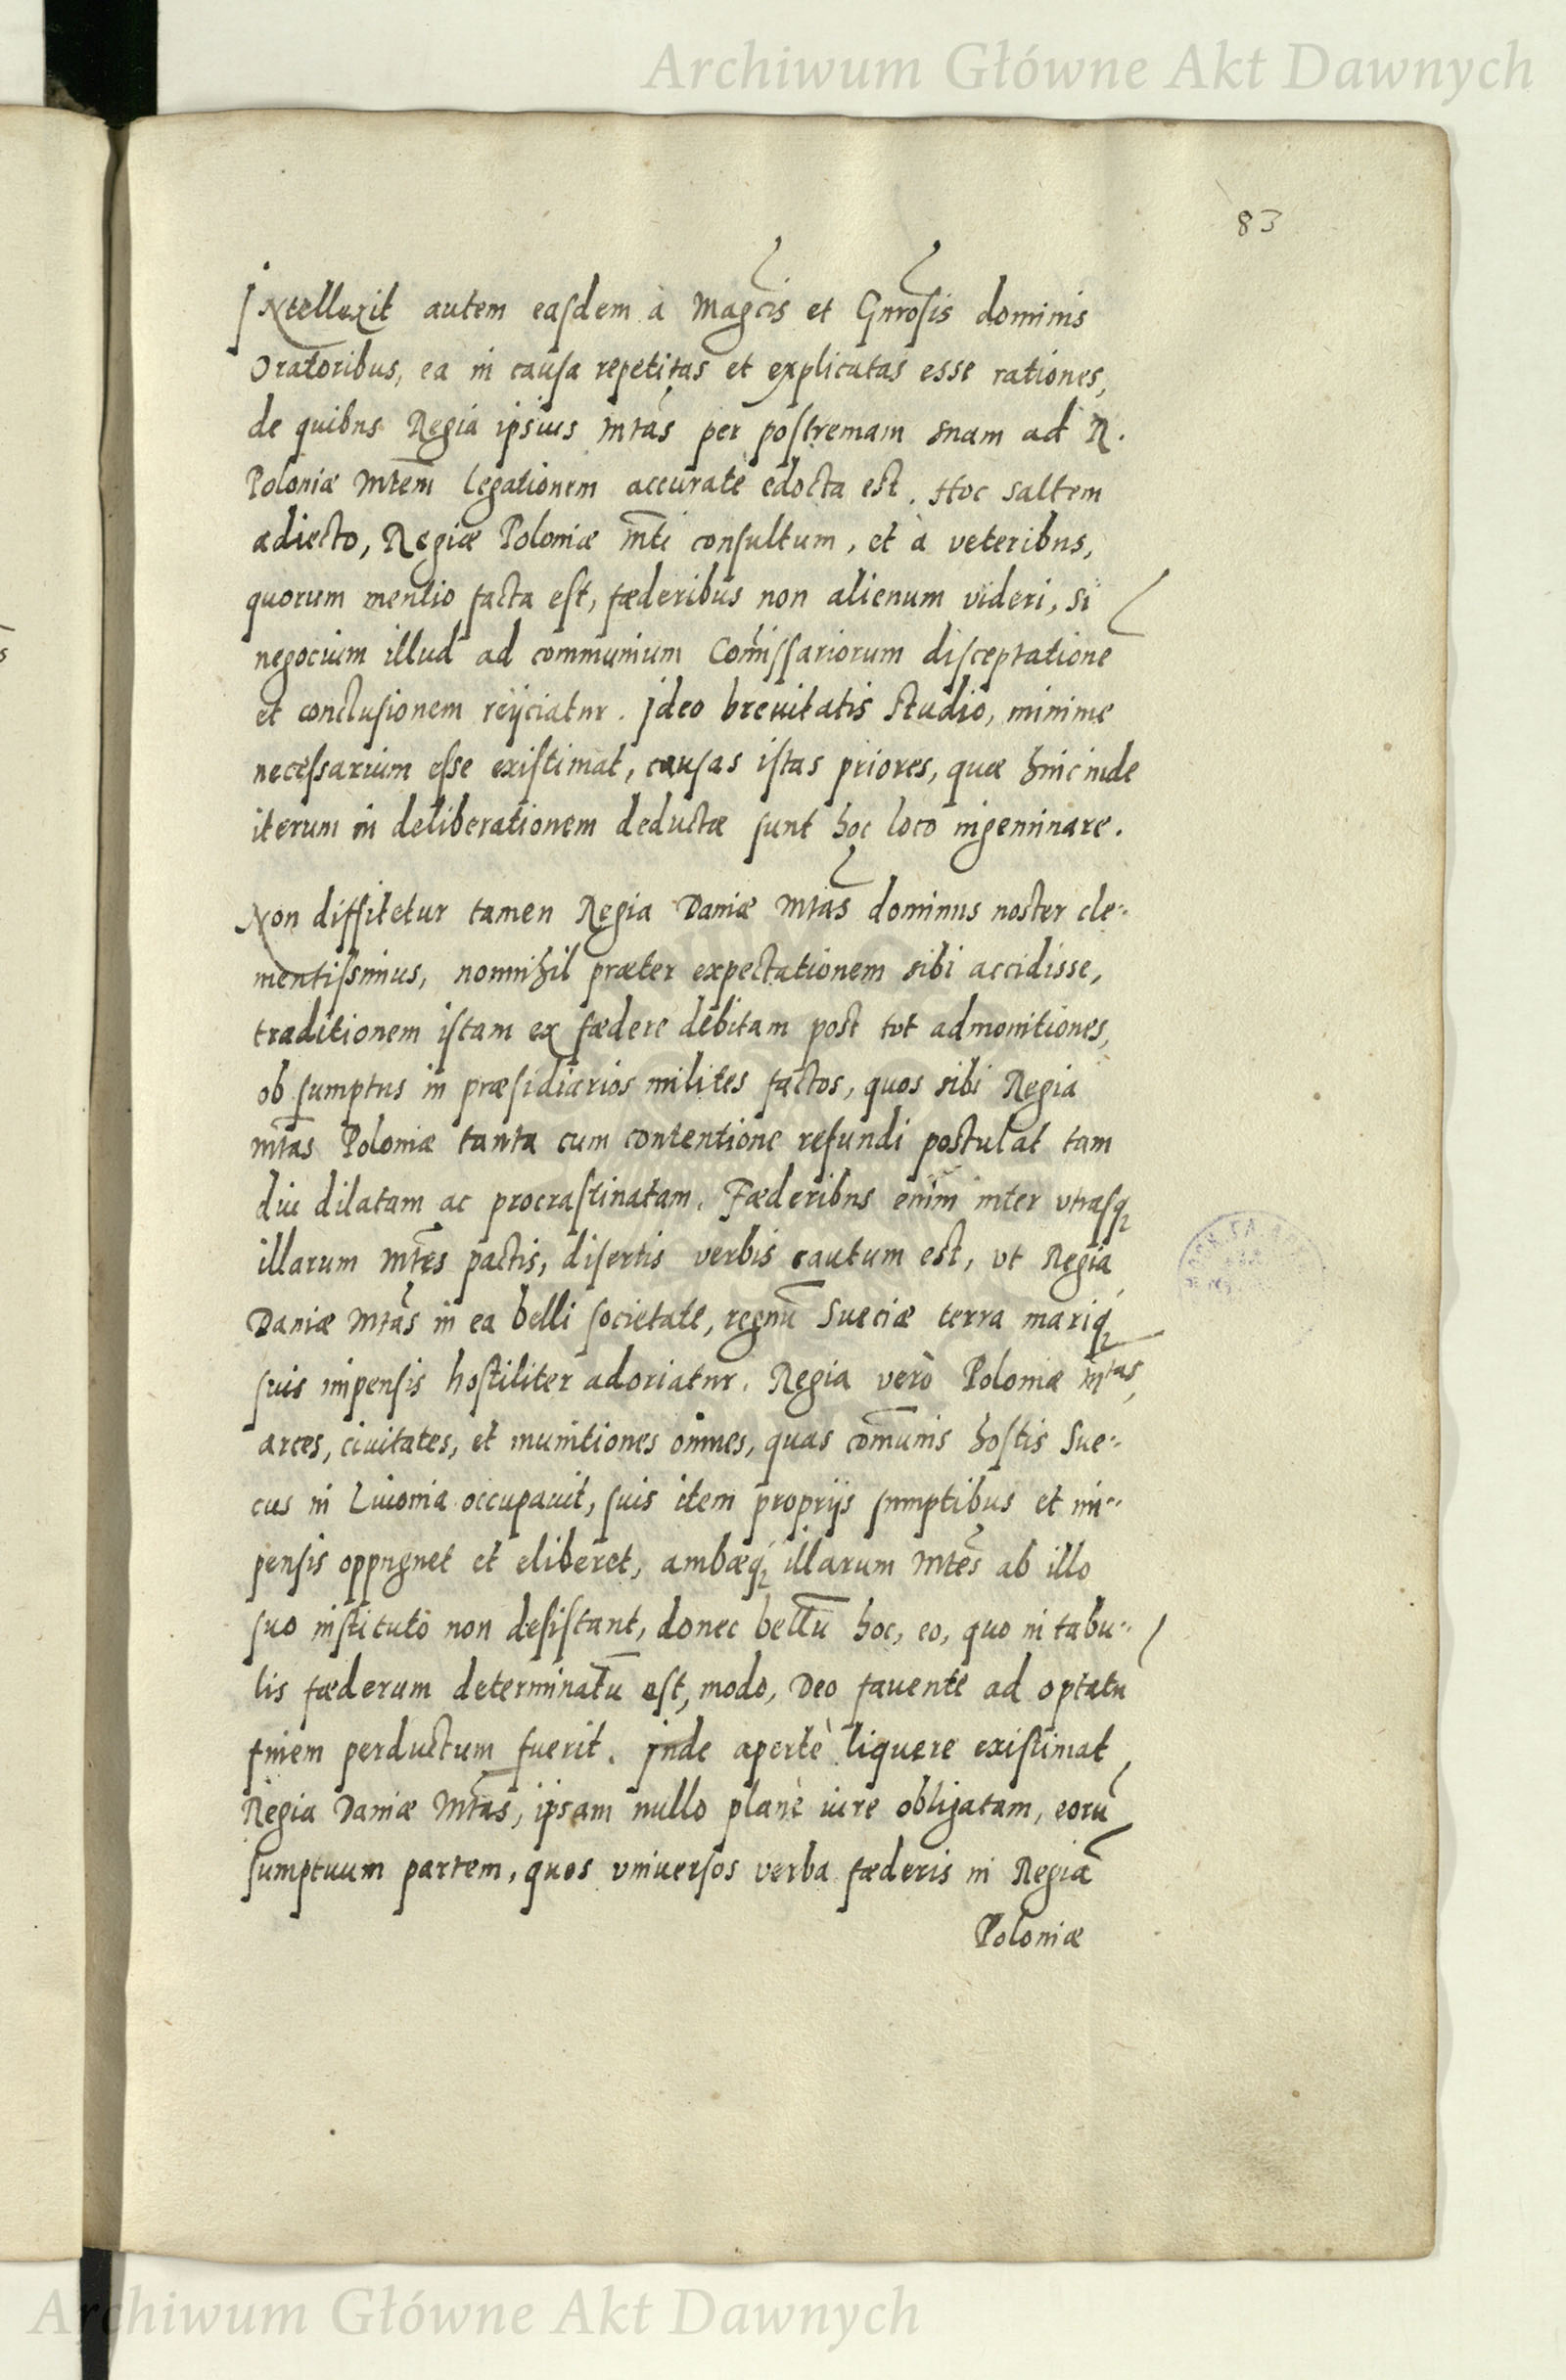 Archiwum Główne Akt Dawnych
83
INtellexit autem easdem à Magcis et Gnrosis dominis
Oratoribus, ea in causa repetitas et explicatas esse rationes,
de quibus Regia ipsius Mtas per postremam suam ad R.
Poloniæ Mtem legationem accuratè edocta est. Hoc saltem
adiecto, Regiæ Poloniæ Mti consultum, et à veteribus,
quorum mentio facta est, fæderibus non alienum videri, si
negocium illud ad communium Comissariorum disceptatione
et conclusionem reijciatur. Ideo breuitatis studio, minime
necessarium esse existimat, causas istas priores, quæ hinc inde
iterum in deliberationem deductæ sunt hoc loco ingeminare.
Non diffitetur tamen Regia Daniæ Mtas dominus noster cle-
mentissimus, nonnihil præter expectationem sibi accidisse,
traditionem istam ex fædere debitam post tot admonitiones,
ob sumptus in præsidiarios milites factos, quos sibi Regia
Mtas Poloniæ tanta cum contentione refundi postulat tam
diu dilatam ac procrastinatam. Fæderibus enim inter vtrasq
illarum Mtes pactis, disertis verbis cautum est, vt Regia
Daniæ Mtas in ea belli societate, regnū Sueciæ terra mariq
suis impensis hostiliter adoriatur. Regia verò Poloniæ Mtas,
arces, ciuitates, et munitiones omnes, quas comunis hostis Sue-
cus in Liuonia occupauit, suis item proprijs sumptibus et im-
pensis oppugnet et eliberet, ambæq illarum Mtes ab illo
suo instituto non desistant, donec bellū hoc, eo, quo in tabu-
lis fæderum determinatū est, modo, Deo fauente ad optatū
finem perductum fuerit. Inde apertè liquere existimat
Regia Daniæ Mtas, ipsam nullo planè iure obligatam, eorū
sumptuum partem, quos vniuersos verba fæderis in Regiā
Poloniæ
Archiwum Główne Akt Dawnych